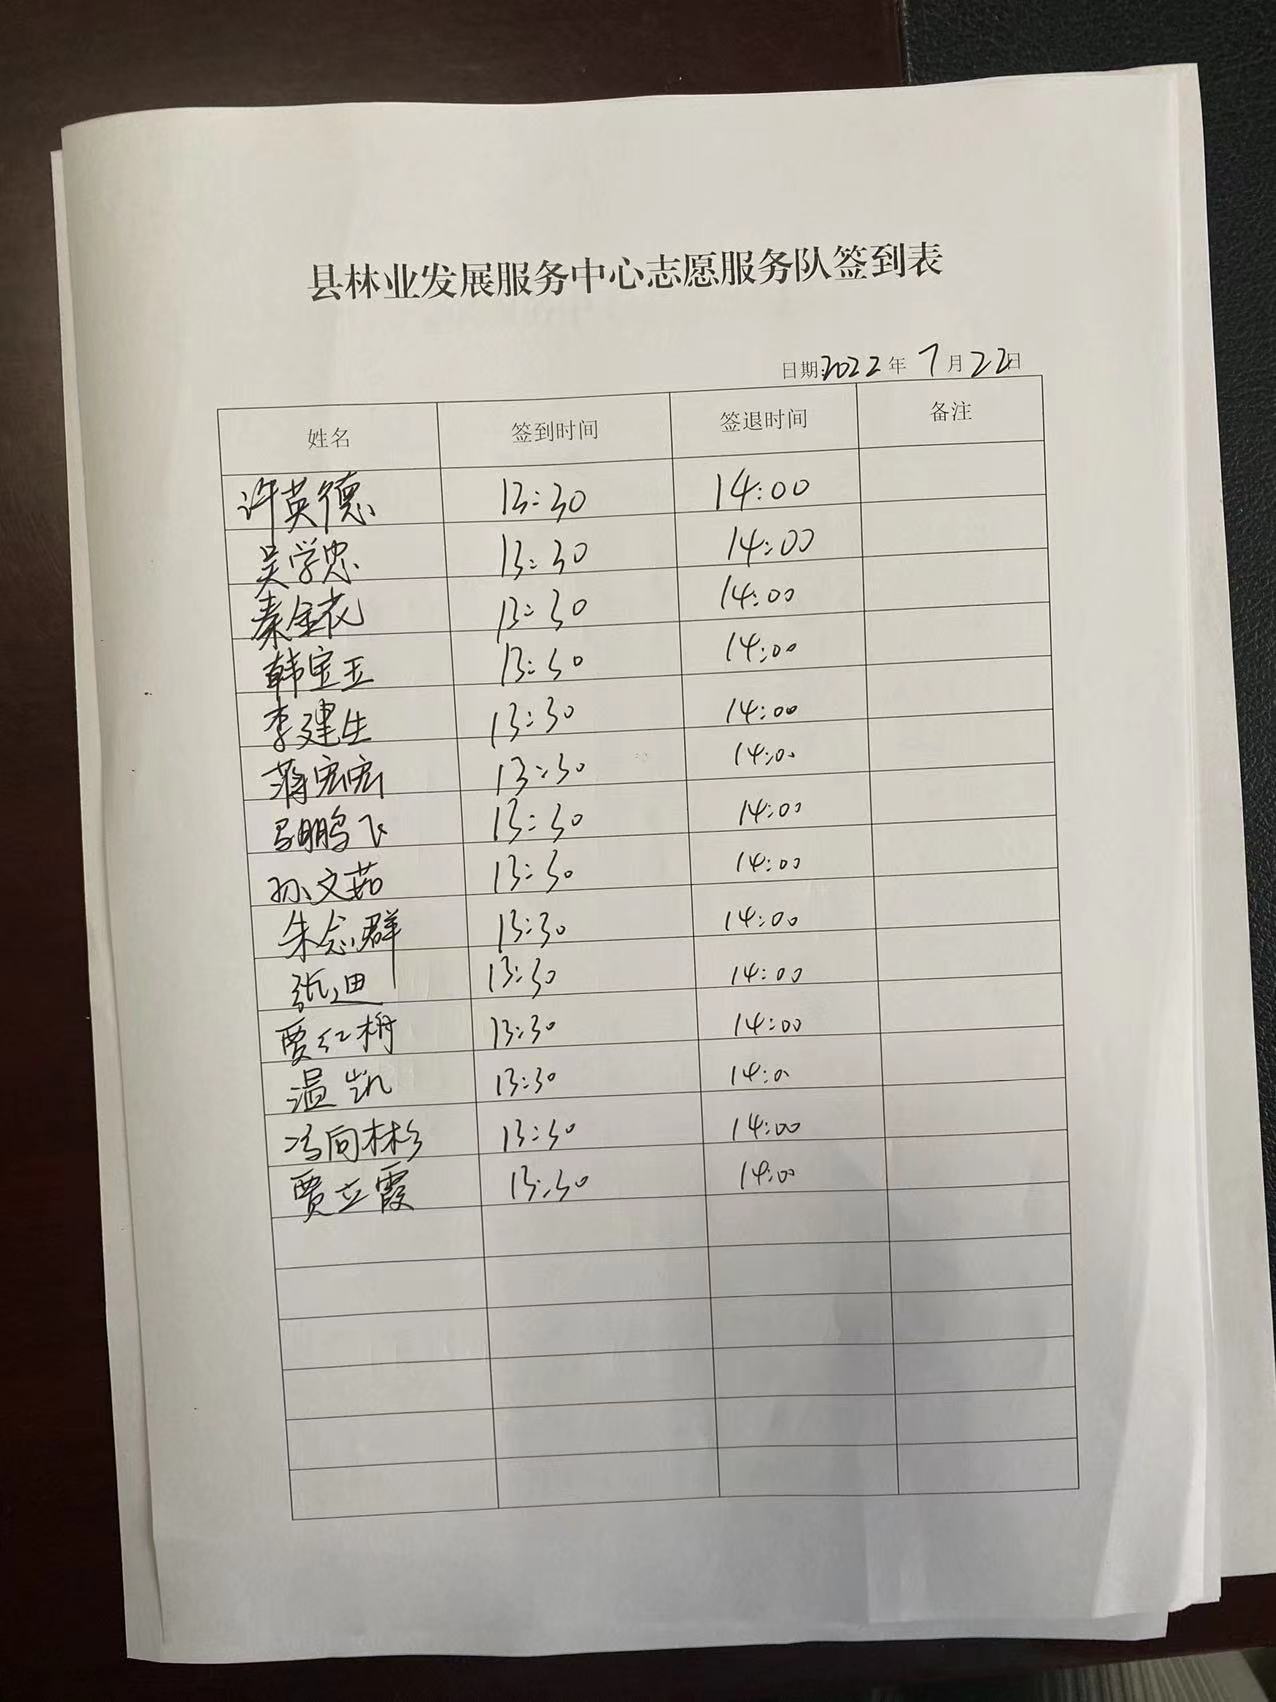 县林业发展服务中心志愿服务队签到表
日期:2022年7月22日
姓名 签到时间 签退时间 备注
许英德 13:30 14:00
吴学忠 13:30 14:00
秦金花 13:30 14:00
韩宝玉 13:30 14:00
李建生 13:30 14:00
蒋宏宏 13:30 14:00
马鹏飞 13:30 14:00
孙文茹 13:30 14:00
朱念群 13:30 14:00
张迪 13:30 14:00
贾红梅 13:30 14:00
温凯 13:30 14:00
冯向彬 13:30 14:00
贾立霞 13:30 14:00